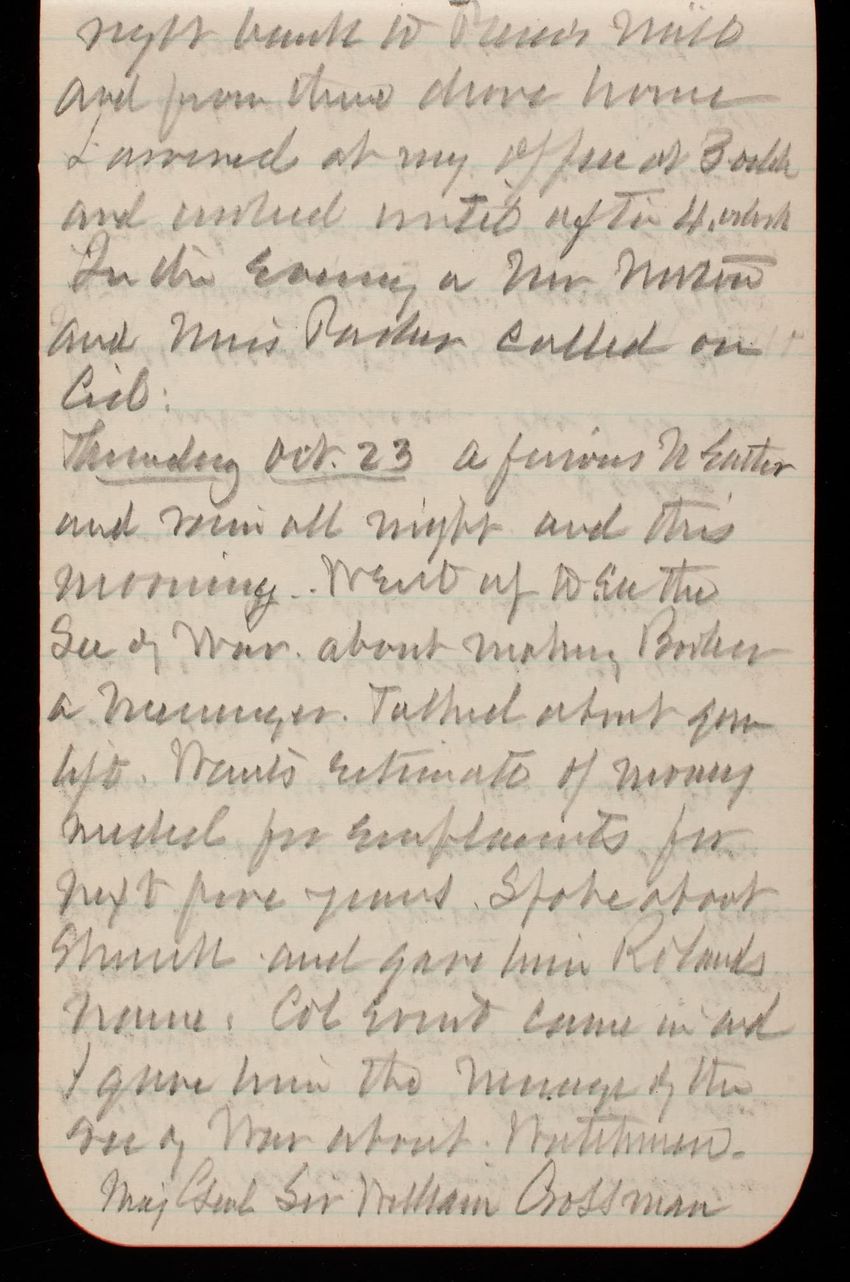 right bank to Pierces Mill
and from there drove home
I arrived at my office at 3 oclk
and worked until after 4. oclock
In the Evening a Mr Norton
and Miss Parker called on
Cid.
Thursday Oct. 23 a furious N Easter
and rain all night and this
morning. Went up to see the
Sec of War. about making Booker
a Messenger. Talked about gun
lift. Wants Estimate of money
needed for Emplacements for
next five years. Spoke about
and gave him Rolands
name. Col Ernst came in and
I gave him the message of the
Sec of War about Watchmen.
Maj Genl Sir William Crossman